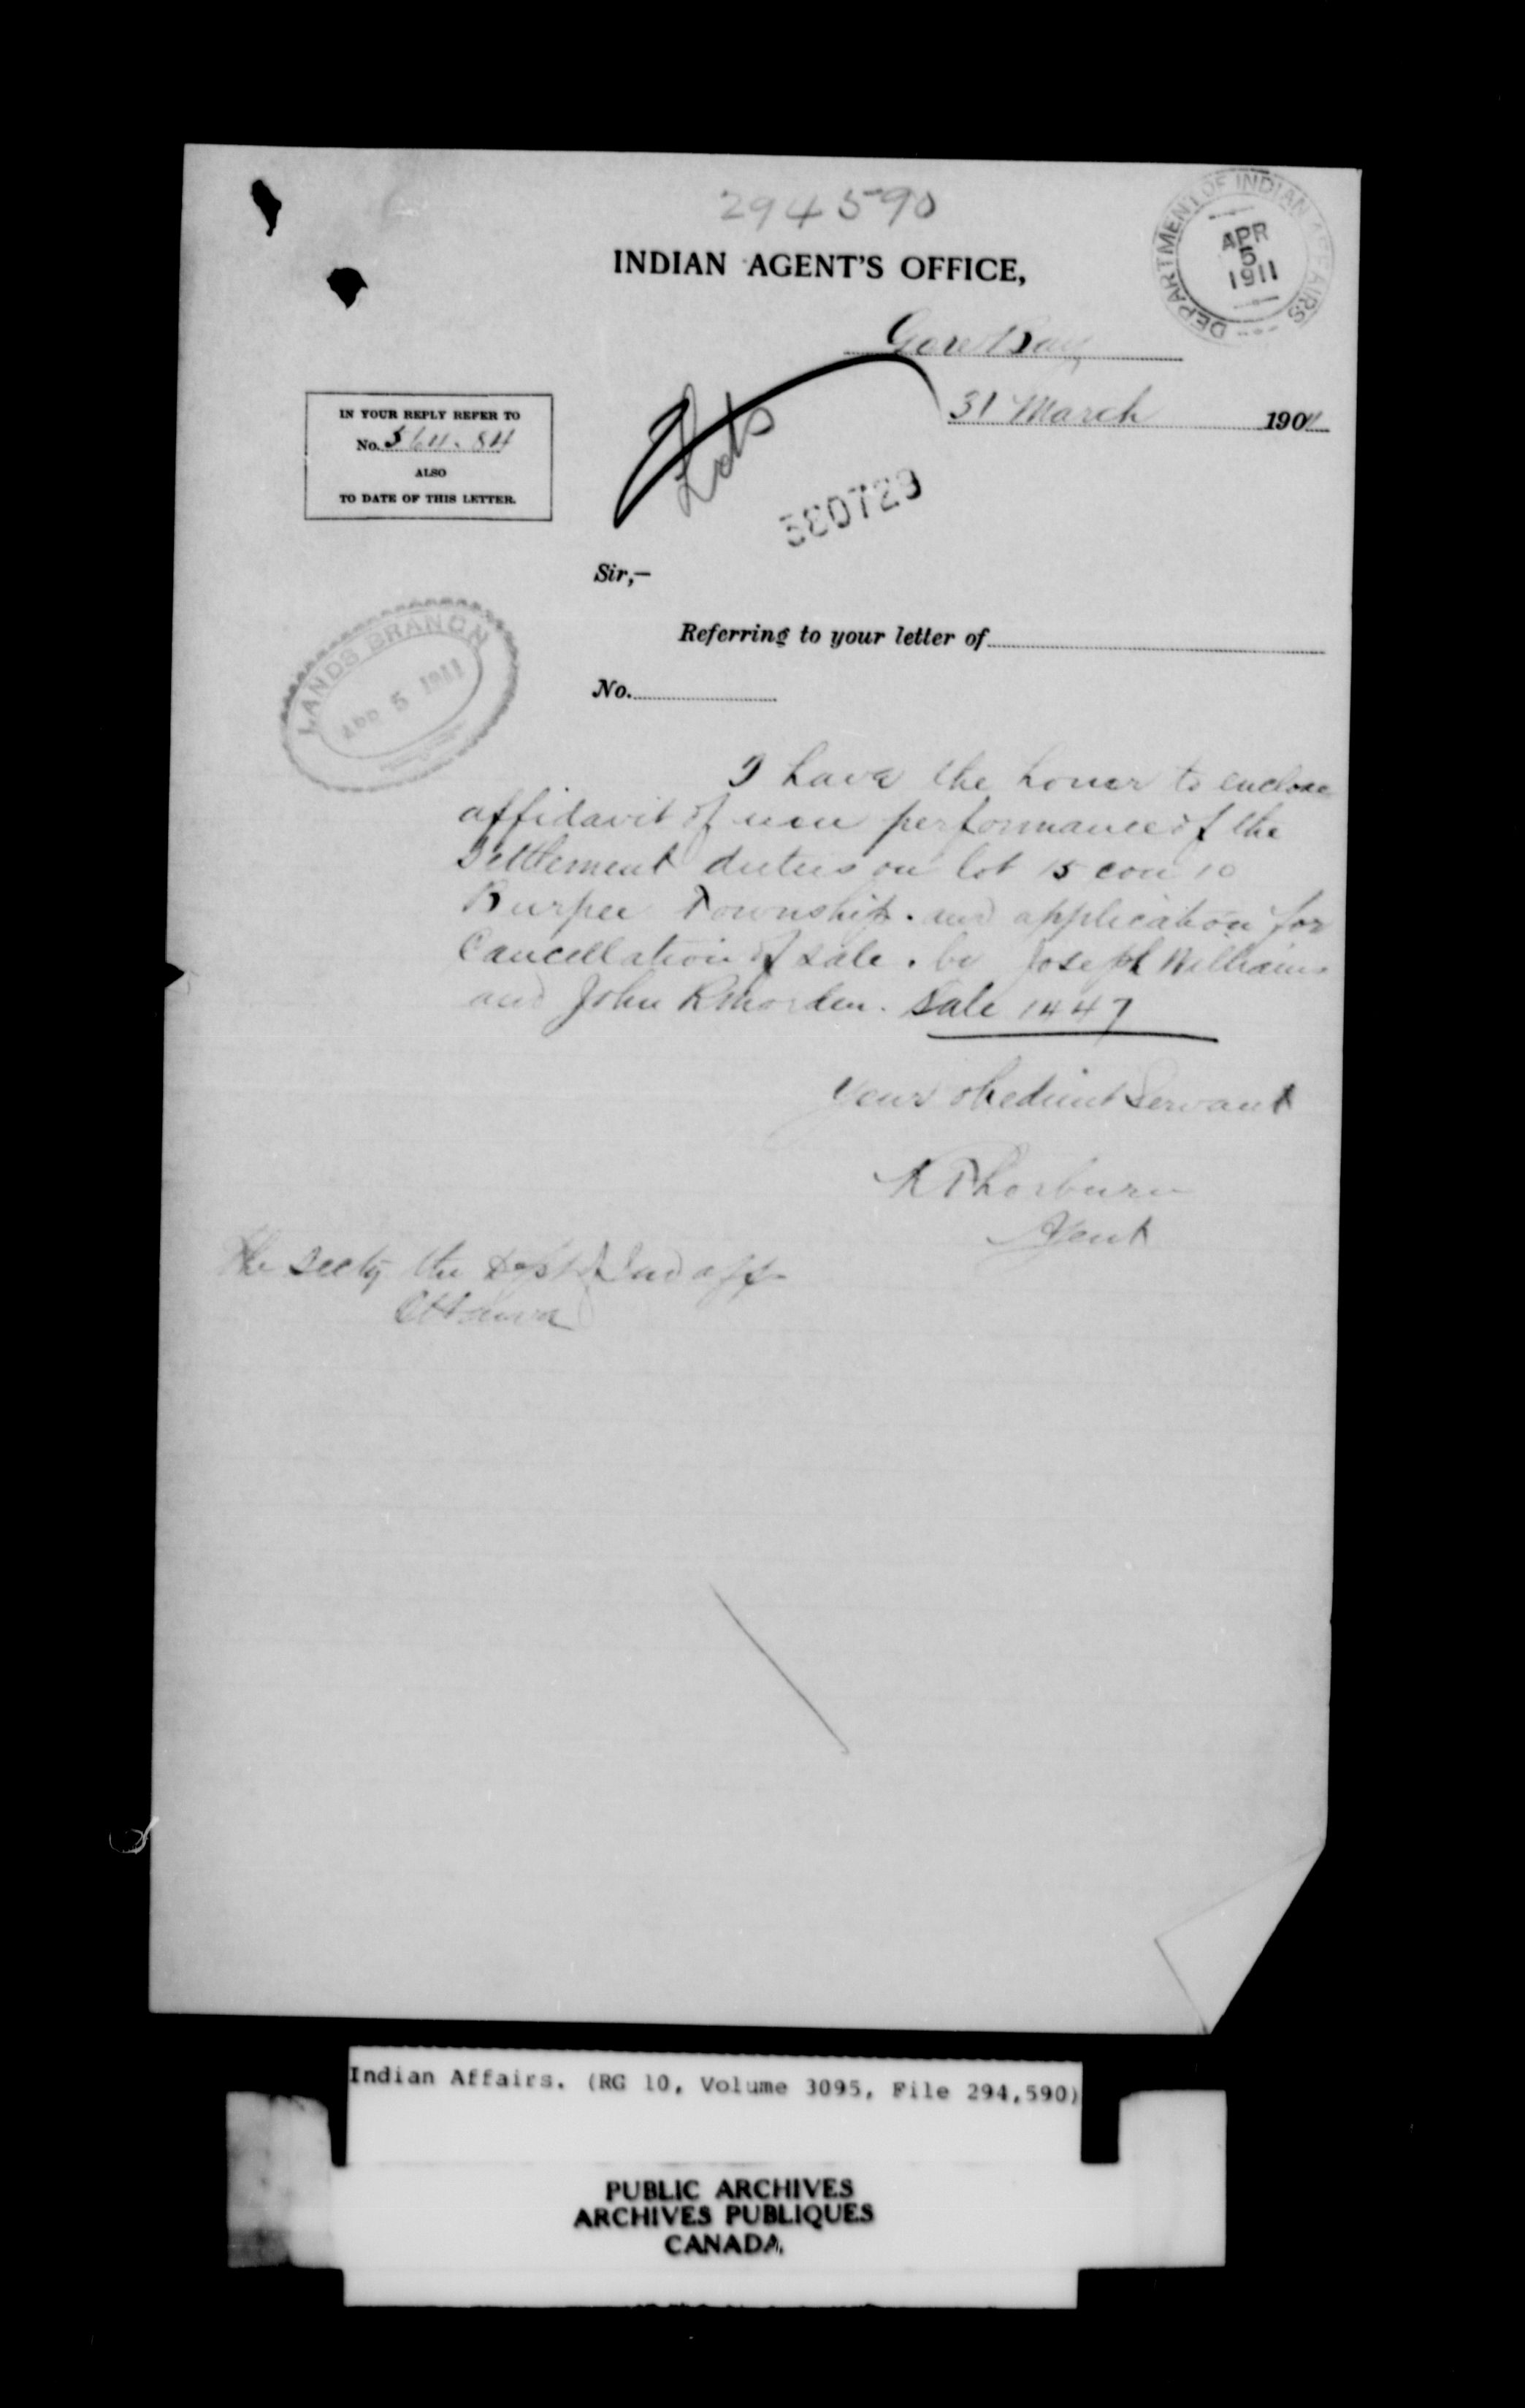 294590
DEPARTMENT OF INDIAN AFFAIRS
APR
5
1911
INDIAN AGENT'S OFFICE,
Gore Bay
31 March 1901
IN YOUR REPLY REFER TO
No. 564.84
ALSO
TO DATE OF THIS LETTER.
Lots
380729
Sir,—
LANDS BRANCH
APR 5 1911
Referring to your letter of
No.
I have the honor to enclose
affidavit of non performance of the
Settlement duties on lot 15 con 10
Burpee Township. and application for
Cancellation of sale. by Joseph Williams
and John Sale 1447
Your obedient Servant
R Thorburn
Agent
The Secty the Dept of Ind affs
Ottawa
Indian Affairs. (RG 10, Volume 3095, File 294,590)
PUBLIC ARCHIVES
ARCHIVES PUBLIQUES
CANADA